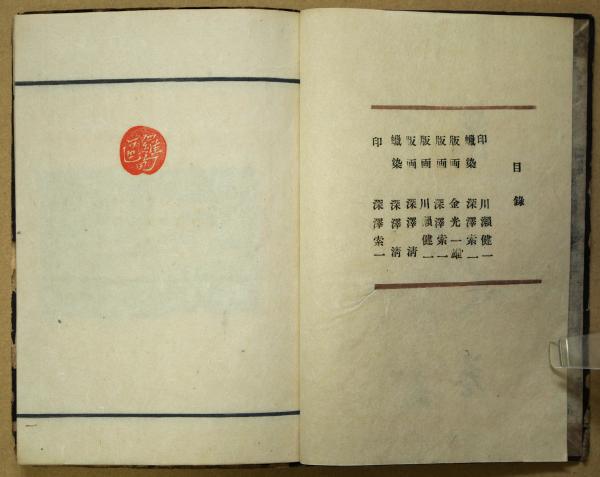 目錄
印 川瀬健一
蠟染 深澤索一
版画 金光一雄
版画 深澤索一
版画 川瀬健一
版画 深澤清
蠟染 深澤清
印 深澤索一
一